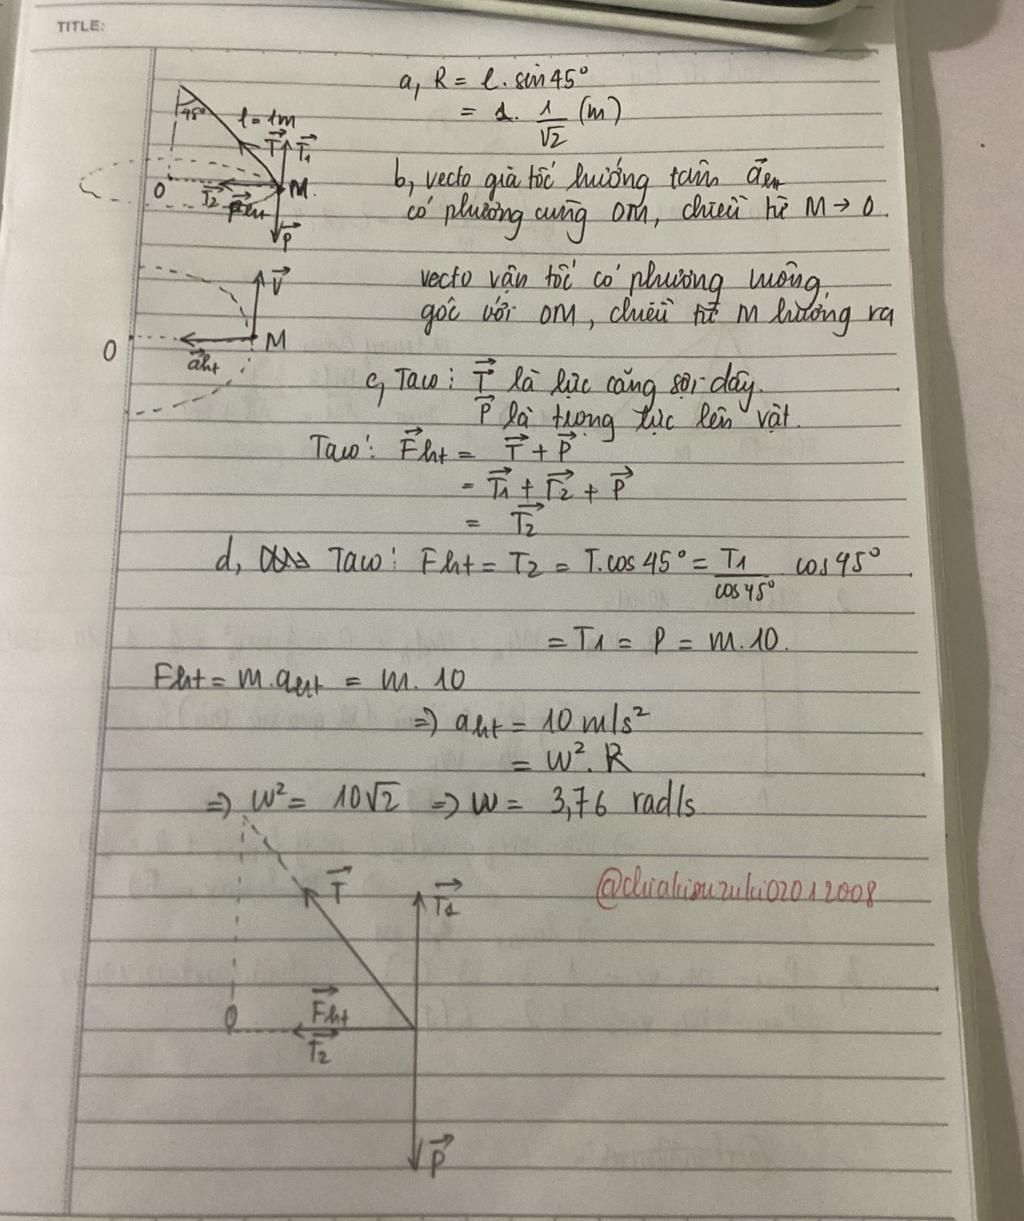 TITLE:
a, R = l. sin 45°
= 1. 1/√2 (m)
45°
l = 1m
T⃗ T⃗₁
O T⃗₂ F⃗ht M
P⃗
b, vectơ gia tốc hướng tâm a⃗ht
có phương cùng OM, chiều từ M → O.
v⃗
O a⃗ht M
vectơ vận tốc có phương vuông
góc với OM, chiều từ M hướng ra
c, Ta có: T⃗ là lực căng sợi dây.
P⃗ là trọng lực lên vật.
Ta có: F⃗ht = T⃗ + P⃗
= T⃗₁ + T⃗₂ + P⃗
= T⃗₂
d, Ta có: Fht = T₂ = T. cos 45° = T₁/cos 45° cos 45°
= T₁ = P = m. 10.
Fht = m. aht = m. 10
⇒ aht = 10 m/s²
= W². R
⇒ W² = 10√2 ⇒ W = 3,76 rad/s
T⃗ T⃗₁
@chiakisuzuki02012008
O F⃗ht
T⃗₂
P⃗